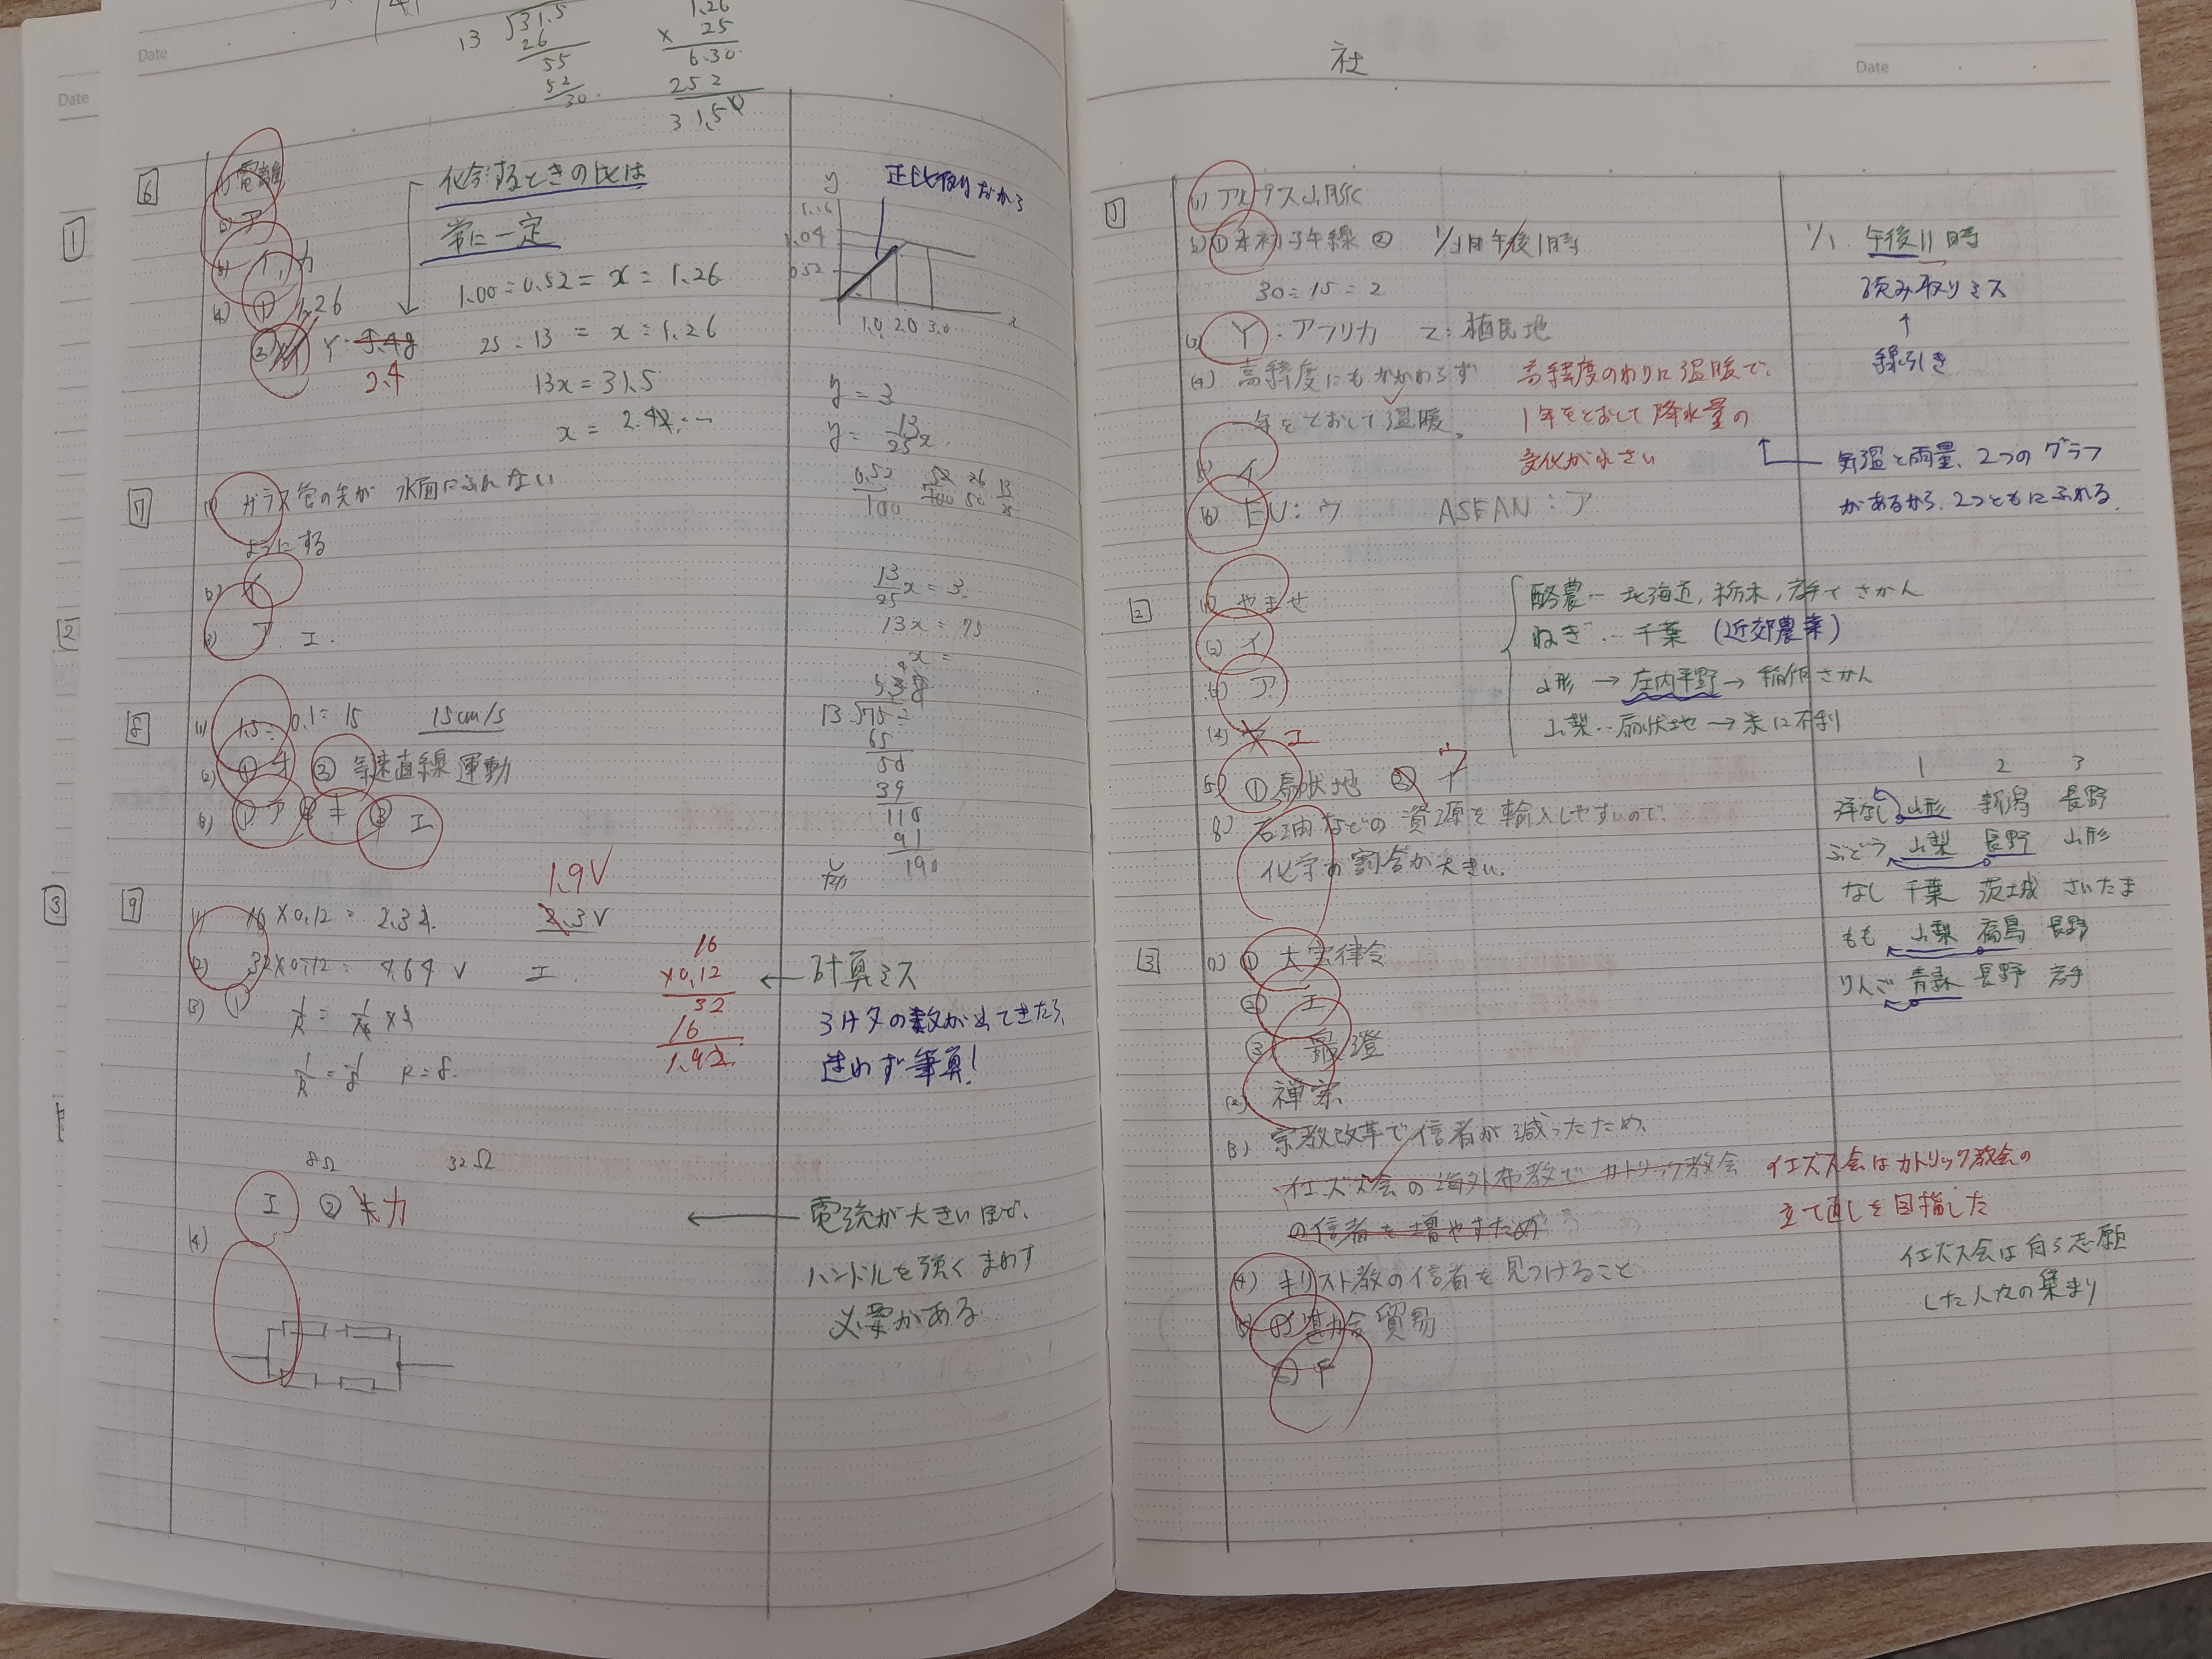 Date
13 31.5
26
55
52
30
1.26
× 25
6.30
252
31.50
6
(1) 電離
(2) ア
(3) イ, カ
(4) ① 1.26
② Y
2.4
化合するときの比は
常に一定
1.00 : 0.52 = x : 1.26
25 : 13 = x : 1.26
13x = 31.5
x = 2.42…
正比例だから
y
1.04
0.52
1.0 2.0 3.0
x
y = 3
y = 13/25 x
0.52/100 52/100 26/50 13/25
13/25 x = 3
13x = 75
x =
13 75
65
50
39
110
91
190
7
(1) ガラス管の先が 水面にふれない
ようにする
(2) イ
(3) ア エ.
8
(1) 1.5 ÷ 0.1 = 15 15cm/s
(2) ① オ ② 等速直線運動
(3) ① ア ② キ ③ エ
9
(1) 16 × 0.12 = 2.32 2.3V
1.9V
(2) 32 × 0.12 = 4.64 V エ
16
×0.12
32
16
1.92
計算ミス
3ケタの数が出てきたら、
迷わず筆算!
(3) ①
1/R = 1/8 R = 8.
8Ω 32Ω
エ ② カ
(4)
電流が大きいほど、
ハンドルを強くまわす
必要がある
Date
1
2
3
社
Date
1
(1) アルプス山脈
(2) ① 本初子午線 ② 1/1 午後1時
30 ÷ 15 = 2
1/1 午後11時
読み取りミス
↑
線引き
(3) Y : アフリカ Z : 植民地
(4) 高緯度にもかかわらず
年をとおして温暖。
高緯度のわりに温暖で、
1年をとおして降水量の
変化が小さい
気温と雨量、2つのグラフ
があるから、2つともにふれる.
(5) イ
(6) EU : ウ ASEAN : ア
2
(1) やませ
(2) イ
(3) ア
(4) エ
(5) ① 扇状地 ② イ ウ
酪農… 北海道, 栃木, 岩手でさかん
ねぎ… 千葉 (近郊農業)
山形 → 庄内平野 → 稲作さかん
山梨… 扇状地 → 米に不利
石油などの資源を輸入しやすいので、
化学の割合が大きい.
1 2 3
洋なし 山形 新潟 長野
ぶどう 山梨 長野 山形
なし 千葉 茨城 さいたま
もも 山梨 福島 長野
りんご 青森 長野 岩手
3
(1) ① 大宝律令
② エ
③ 最澄
(2) 禅宗
(3) 宗教改革で信者が減ったため、
イエズス会の海外布教でカトリック教会
の信者を増やすため
イエズス会はカトリック教会の
立て直しを目指した
イエズス会は自ら志願
した人々の集まり
(4) キリスト教の信者を見つけること
(5) ① 勘合貿易